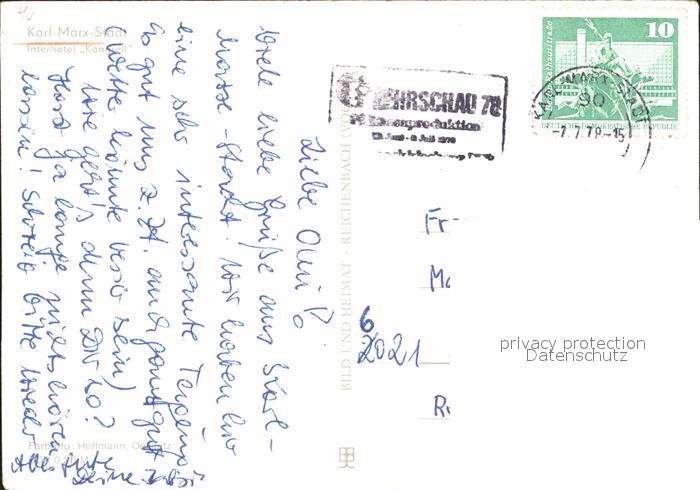 Karl-Marx-Stadt
Interhotel „Kongreß“
Liebe Omi!
Viele liebe Grüße aus Karl-
Marx-Stadt. Wir haben hier
eine sehr interessante Tagung
Es geht uns z. Zt. auch ganz gut
(Wetter könnte besser sein)
Wie geht's denn Dir so?
Hast ja lange nichts hören
lassen! Schreib bitte wieder
Alles Gute
Deine
Farbfoto: Hoffmann,
BILD UND HEIMAT · REICHENBACH (VO
LEHRSCHAU 78
10
DEUTSCHE DEMOKRATISCHE REPUBLIK
KARL-MARX-STADT
90
-7.7.78-15
Fr
6
2021
privacy protection
Datenschutz